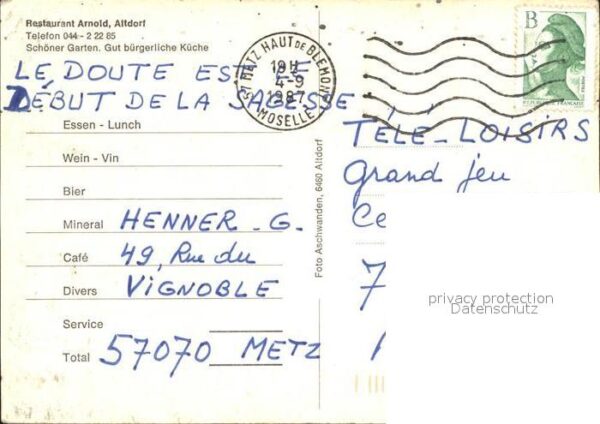 Restaurant Arnold, Altdorf
Telefon 044 - 2 22 85
Schöner Garten. Gut bürgerliche Küche
LE DOUTE EST LE
DÉBUT DE LA SAGESSE
Essen - Lunch
Wein - Vin
Bier
Mineral HENNER - G.
Café 49, Rue du
Divers VIGNOBLE
Service
Total 57070 METZ
Foto Aschwanden, 6460 Altdorf
57 METZ HAUT DE BLEMONT
18 H
4-9
1987
MOSELLE
B
TÉLÉ-LOISIRS
Grand jeu
Ce
7
privacy protection
Datenschutz